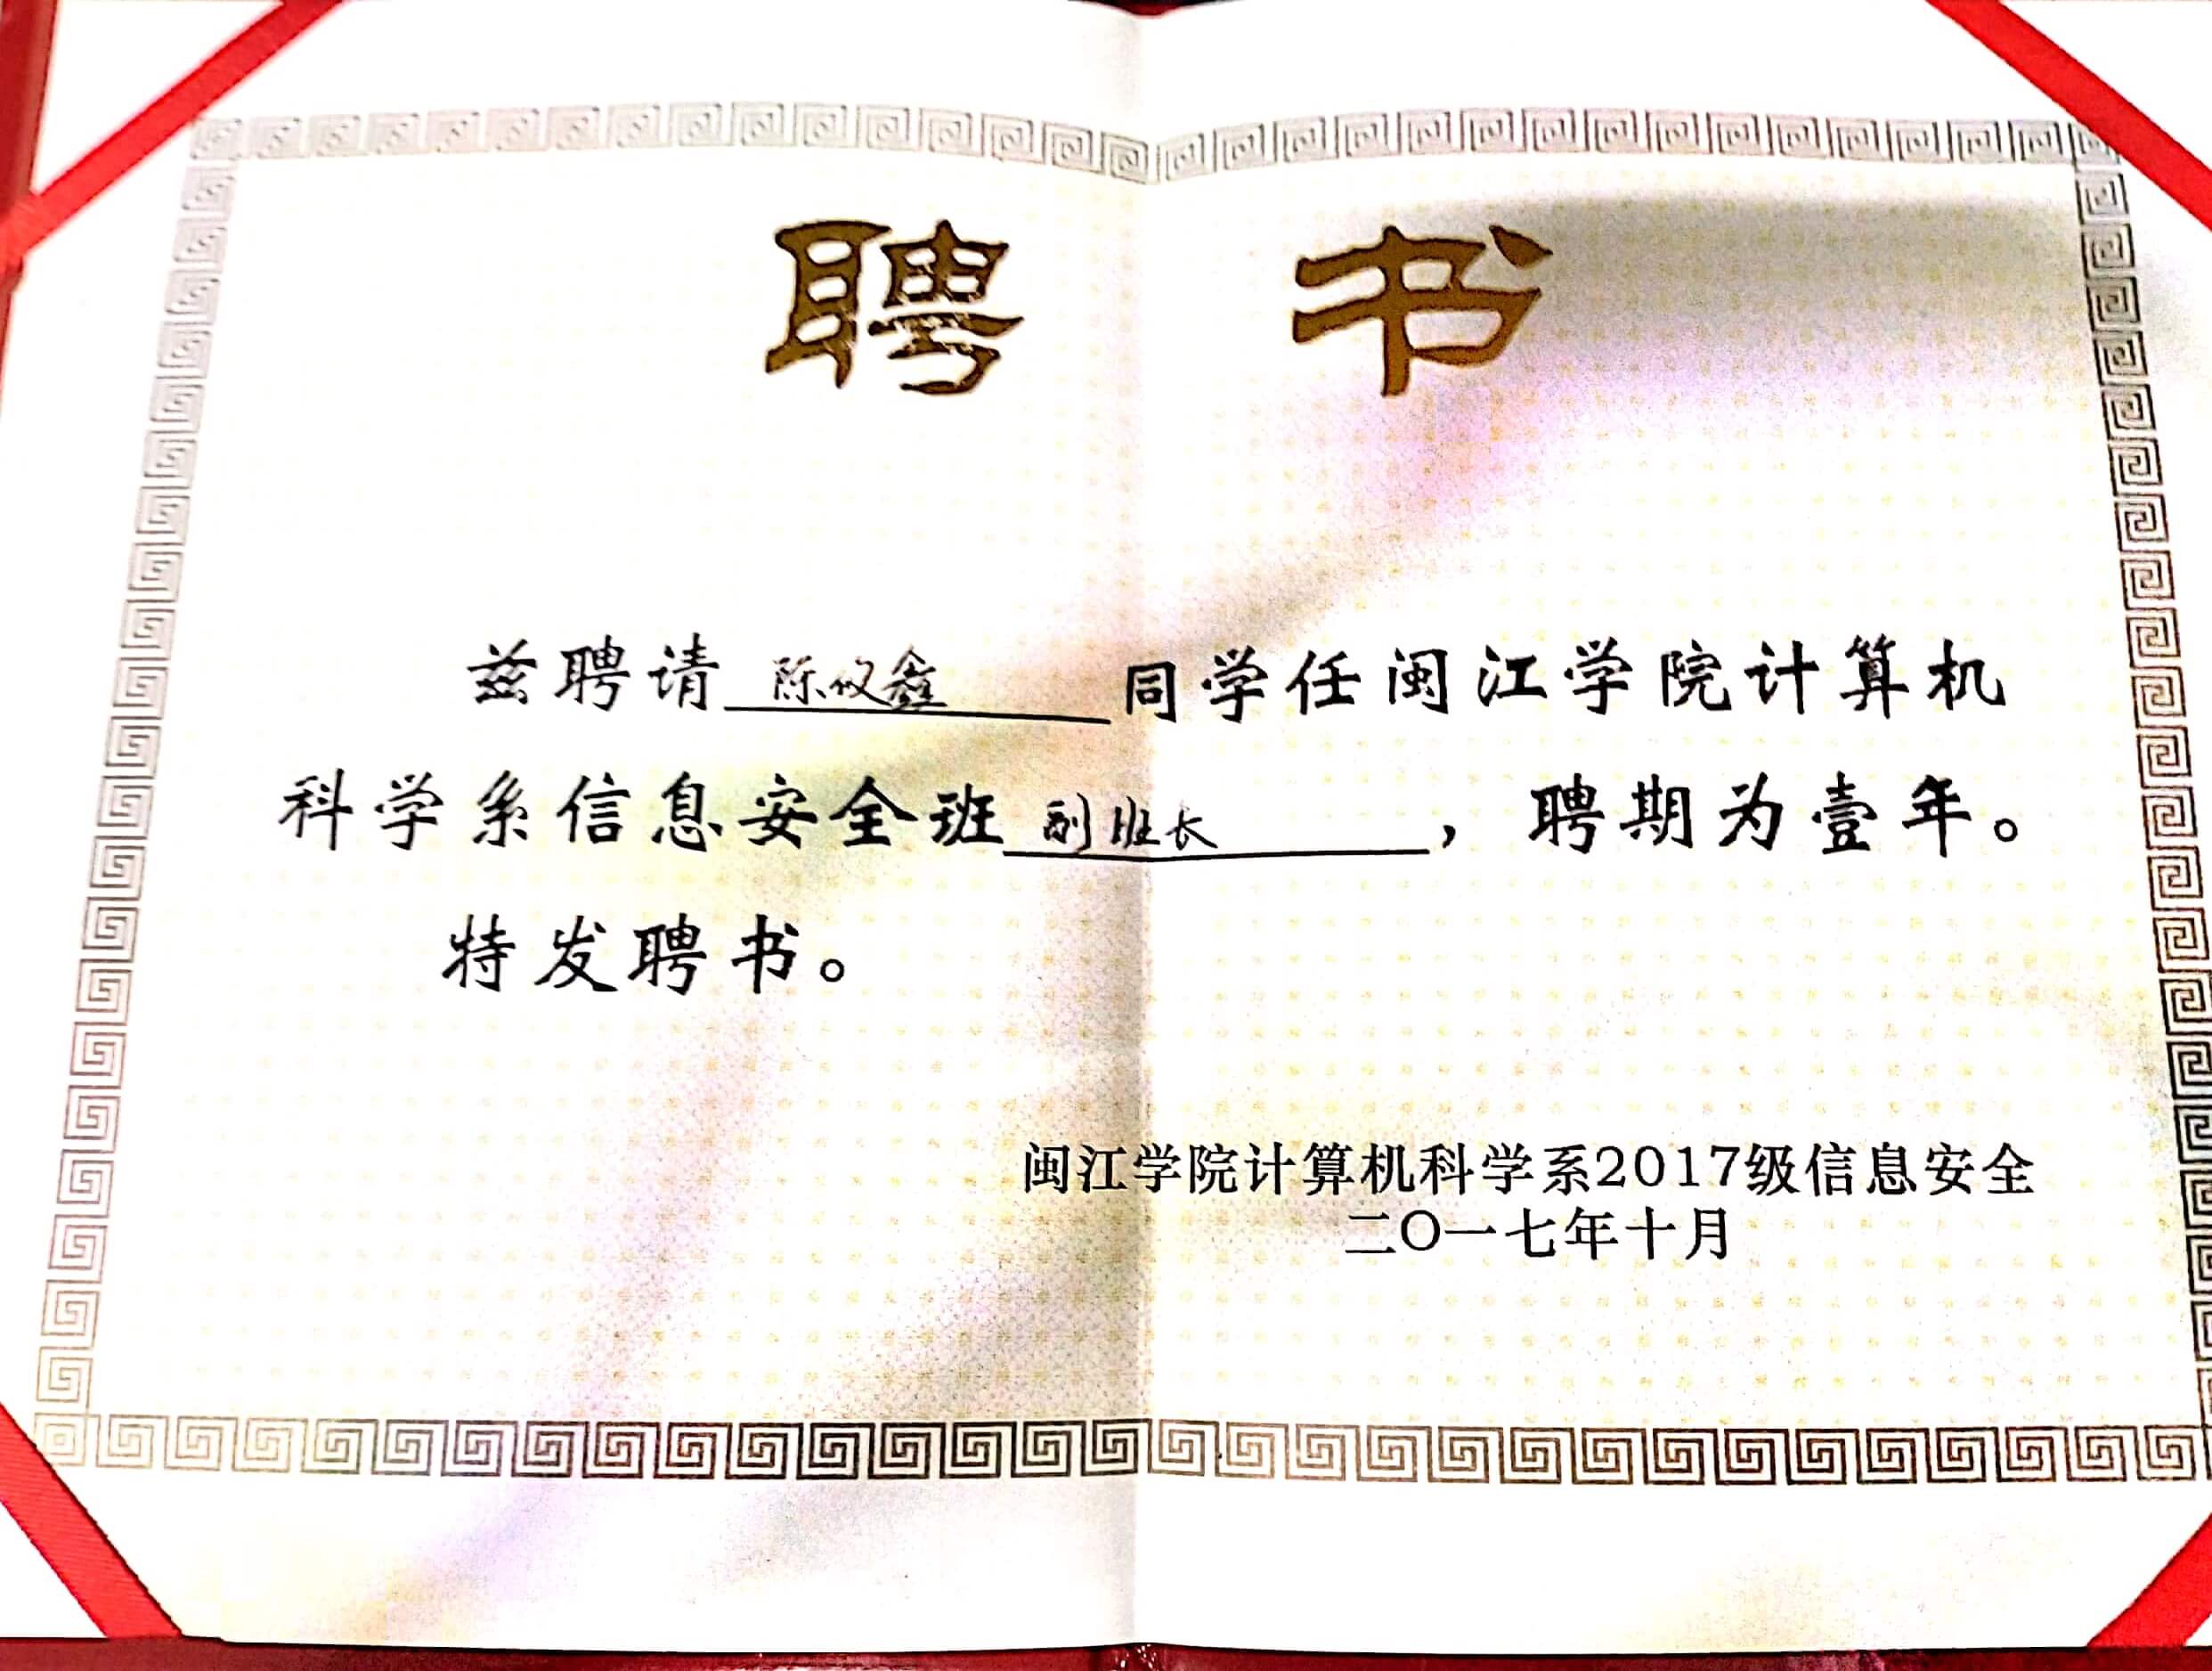 聘书
兹聘请 陈仪鑫 同学任闽江学院计算机
科学系信息安全班 副班长 ，聘期为壹年。
特发聘书。
闽江学院计算机科学系2017级信息安全
二〇一七年十月